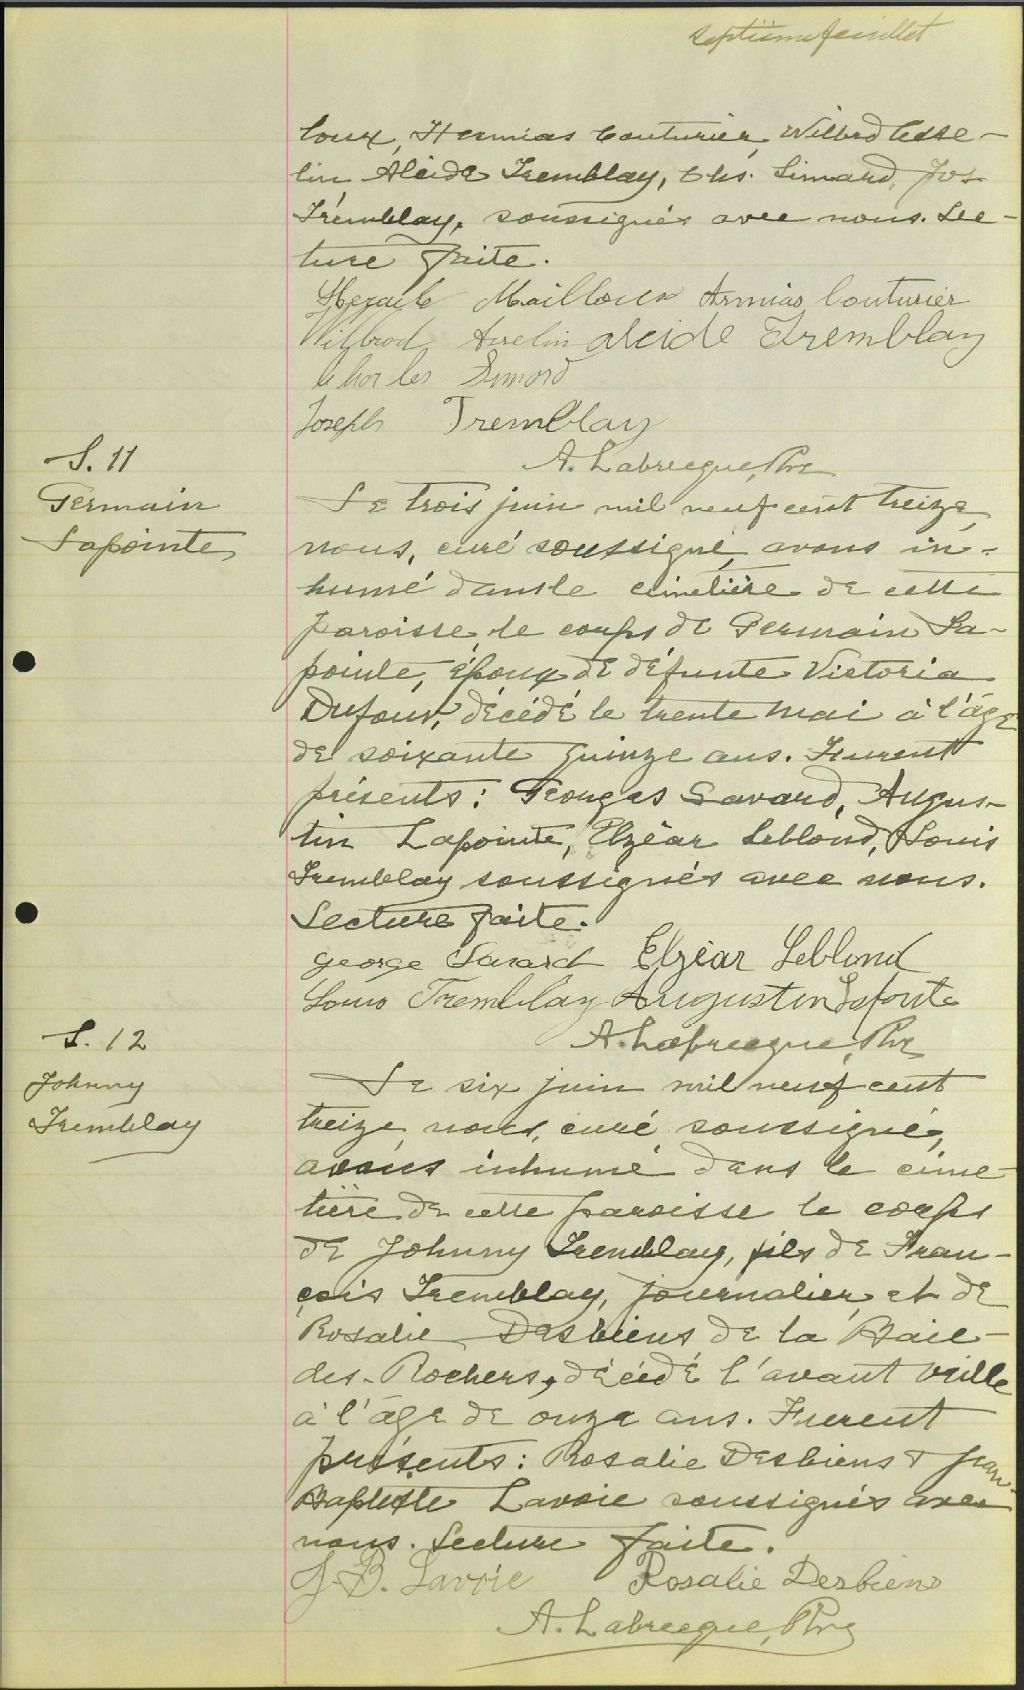 septième feuillet
loux, Hermias Couturier, Wilbrod Asse-
lin, Alcide Tremblay, Chs. Simard, Jos
Tremblay, soussignés avec nous. Lec-
ture faite.
Mailloux Armias Couturier
Wilbrod Asselin alcide Tremblay
Charles Simard
Joseph Tremblay
A. Labrecque, Ptre
S. 11
Germain
Lapointe
Le trois juin mil neuf cent treize,
nous, curé soussigné, avons in-
humé dans le cimetière de cette
paroisse, le corps de Germain La-
pointe, époux de défunte Victoria
Dufour, décédé le trente mai à l'âge
de soixante quinze ans. Furent
présents: Georges Savard, Augus-
tin Lapointe, Elzéar Leblond, Louis
Tremblay soussignés avec nous.
Lecture faite.
george Savard Elzéar Leblond
Louis Tremblay Augustin Lapointe
A. Labrecque, Ptre
S. 12
Johnny
Tremblay
Le six juin mil neuf cent
treize, nous, curé soussigné,
avons inhumé dans le cime-
tière de cette paroisse le corps
de Johnny Tremblay, fils de Fran-
çois Tremblay, journalier, et de
Rosalie Desbiens de la Baie-
des-Rochers, décédé l'avant veille
à l'âge de onze ans. Furent
présents: Rosalie Desbiens & Jean-
Baptiste Lavoie soussignés avec
nous. Lecture faite.
J. B. Lavoie Rosalie Desbiens
A. Labrecque, Ptre